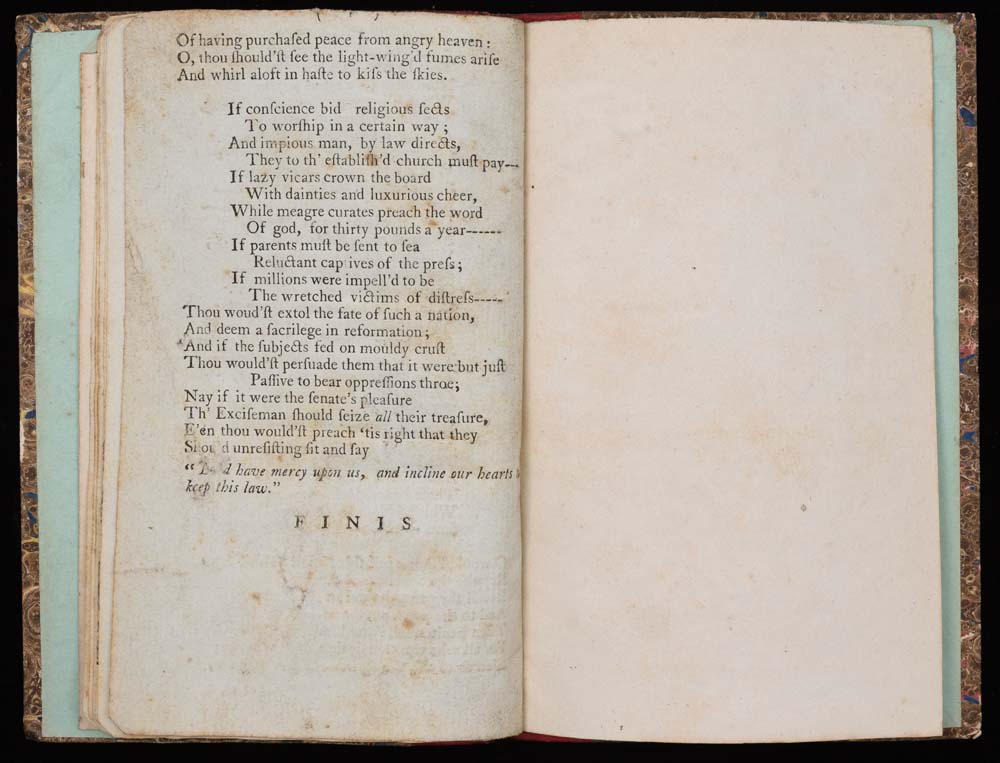 Of having purchaſed peace from angry heaven :
O, thou ſhould'ſt ſee the light-wing'd fumes ariſe
And whirl aloft in haſte to kiſs the ſkies.
If conſcience bid religious ſects
To worſhip in a certain way ;
And impious man, by law directs,
They to th' eſtabliſh'd church muſt pay---
If lazy vicars crown the board
With dainties and luxurious cheer,
While meagre curates preach the word
Of god, for thirty pounds a year------
If parents muſt be ſent to ſea
Reluctant captives of the preſs ;
If millions were impell'd to be
The wretched victims of diſtreſs-----
Thou woud'ſt extol the fate of ſuch a nation,
And deem a ſacrilege in reformation ;
And if the ſubjects fed on mouldy cruſt
Thou would'ſt perſuade them that it were but juſt
Paſſive to bear oppreſſions throe;
Nay if it were the ſenate's pleaſure
Th' Exciſeman ſhould ſeize all their treaſure,
E'en thou would'ſt preach 'tis right that they
Shou'd unreſiſting ſit and ſay
" Lord have mercy upon us, and incline our hearts
keep this law."
FINIS